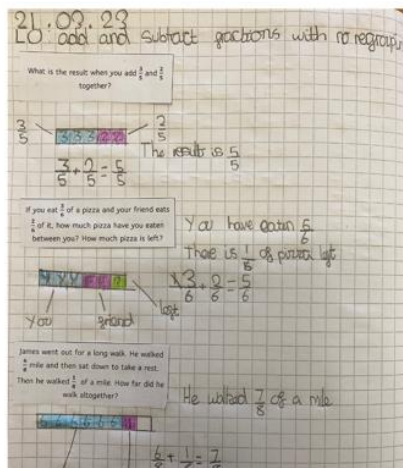 21.03.23
LO: add and subtract fractions with no regrouping
What is the result when you add 3/5 and 2/5
together?
3/5
3 3 3 2 2
2/5
The result is 5/5
3/5 + 2/5 = 5/5
If you eat 3/6 of a pizza and your friend eats
2/6 of it, how much pizza have you eaten
between you? How much pizza is left?
You have eaten 5/6
There is 1/6 of pizza left
3/6 + 2/6 = 5/6
You
friend
left
James went out for a long walk. He walked
6/8 mile and then sat down to take a rest.
Then he walked 1/8 of a mile. How far did he
walk altogether?
He walked 7/8 of a mile
6/8 + 1/8 = 7/8